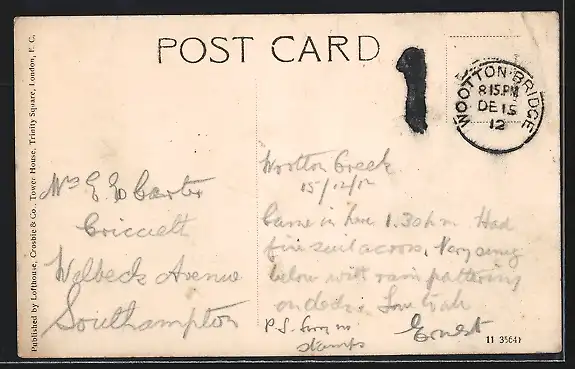 POST CARD
1
WOOTTON BRIDGE
8 15 PM
DE 15
12
Published by Lofthouse, Crosbie & Co., Tower House, Trinity Square, London, E.C.
Mrs E Carter
Welbeck Avenue
Southampton
Wootton Creek
15/12/12
Came in here 1.30 p m Had
fine sail across. Very snug
below with rain pattering
on deck. Love to all
Ernest
P.S. Sorry no
stamps
11 35641